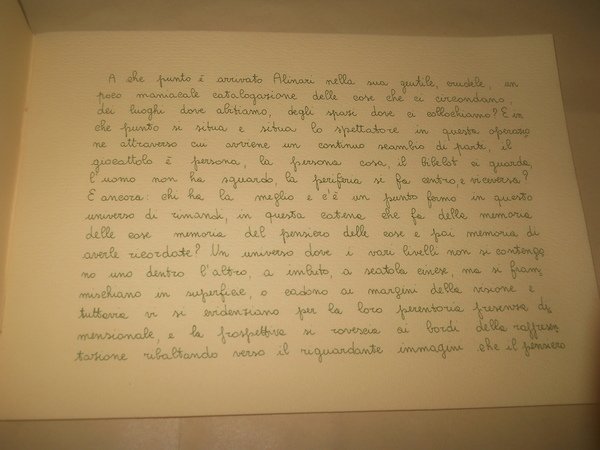 A che punto è arrivato Alinari nella sua gentile, crudele, un
poco maniacale catalogazione delle cose che ci circondano,
dei luoghi dove abitiamo, degli spazi dove ci collochiamo? E in
che punto si situa e situa lo spettatore in questa operazio
ne attraverso cui avviene un continuo scambio di parte, il
giocattolo è persona, la persona cosa, il bibelot ci guarda,
l'uomo non ha sguardo, la periferia si fa centro, e viceversa?
E ancora: chi ha la meglio e c'è un punto fermo in questo
universo di rimandi, in questa catena che fa della memoria
delle cose memoria del pensiero delle cose e poi memoria di
averle ricordate? Un universo dove i vari livelli non si contengo
no uno dentro l'altro, a imbuto, a scatola cinese, ma si fram
mischiano in superficie, o cadono ai margini della visione e
tuttavia vi si evidenziano per la loro perentoria presenza di
mensionale, e la prospettiva si rovescia ai bordi della rappresen
tazione ribaltando verso il riguardante immagini che il pensiero